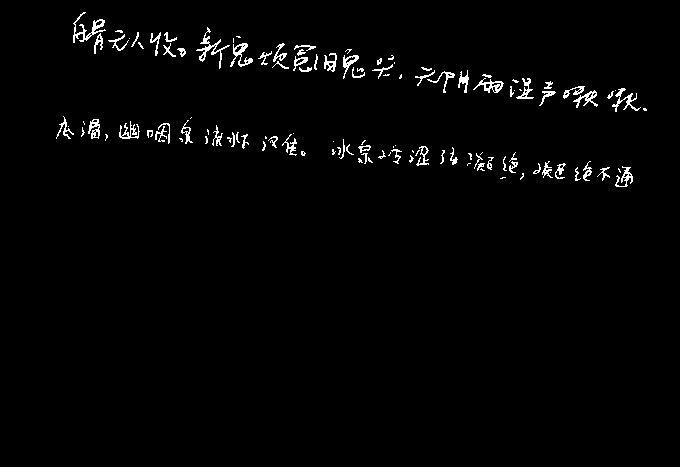 白骨无人收。新鬼烦冤旧鬼哭,天阴雨湿声啾啾.
底滑,幽咽泉流水下滩。冰泉冷涩弦凝绝,凝绝不通